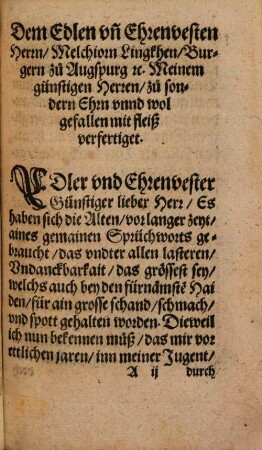 Dem Edlen vñ Ehrenvesten
Herrn/ Melchiorn Lingkhen/ Bur-
gern zů Augspurg ꝛc. Meinem
günstigen Herren/ zů son-
dern Ehrn vnnd wol
gefallen mit fleiß
verfertiget.
EDler vnd Ehrenvester
Günstiger lieber Herr/ Es
haben sich die Alten/ vor langer zeyt/
aines gemainen Sprüchworts ge-
braucht/ das vndter allen lasteren/
Vndanckbarkait/ das grössest sey/
welchs auch bey den fürnämste Hai
den/ für ain grosse schand/ schmach/
vnd spott gehalten worden. Dieweil
ich nun bekennen můß/ das mir vor
ettlichen jaren/ inn meiner Jugent/
A ij durch